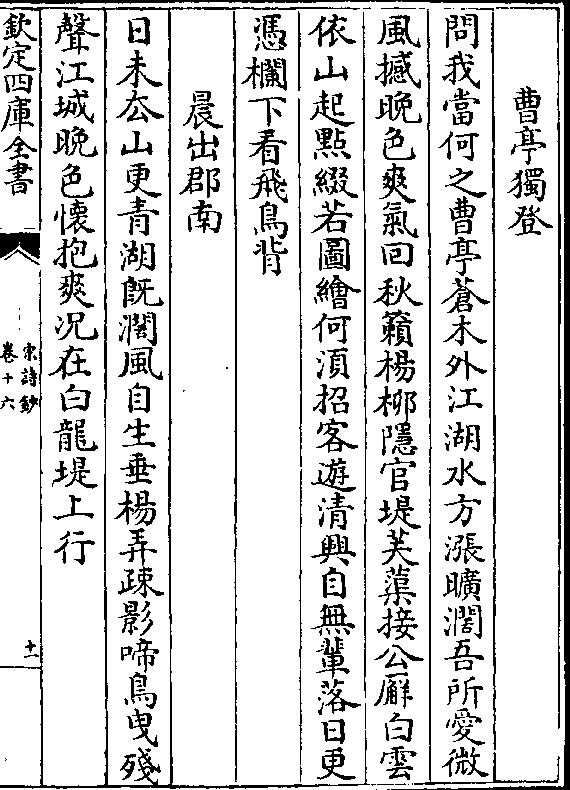 曹亭獨登
問我當何之曹亭蒼木外江湖水方漲曠濶吾所愛微
風撼晚色爽氣回秋籟楊柳隱官堤芙蕖接公廨白雲
依山起點綴若圖繪何湏招客遊清興自無輩落日更
憑欄下看飛鳥背
晨出郡南
日未厺山更青湖旣濶風自生垂楊弄疎影啼鳥曳殘
聲江城晚色懷抱爽况在白龍堤上行
欽定四庫全書
宋詩鈔
卷十六
十一